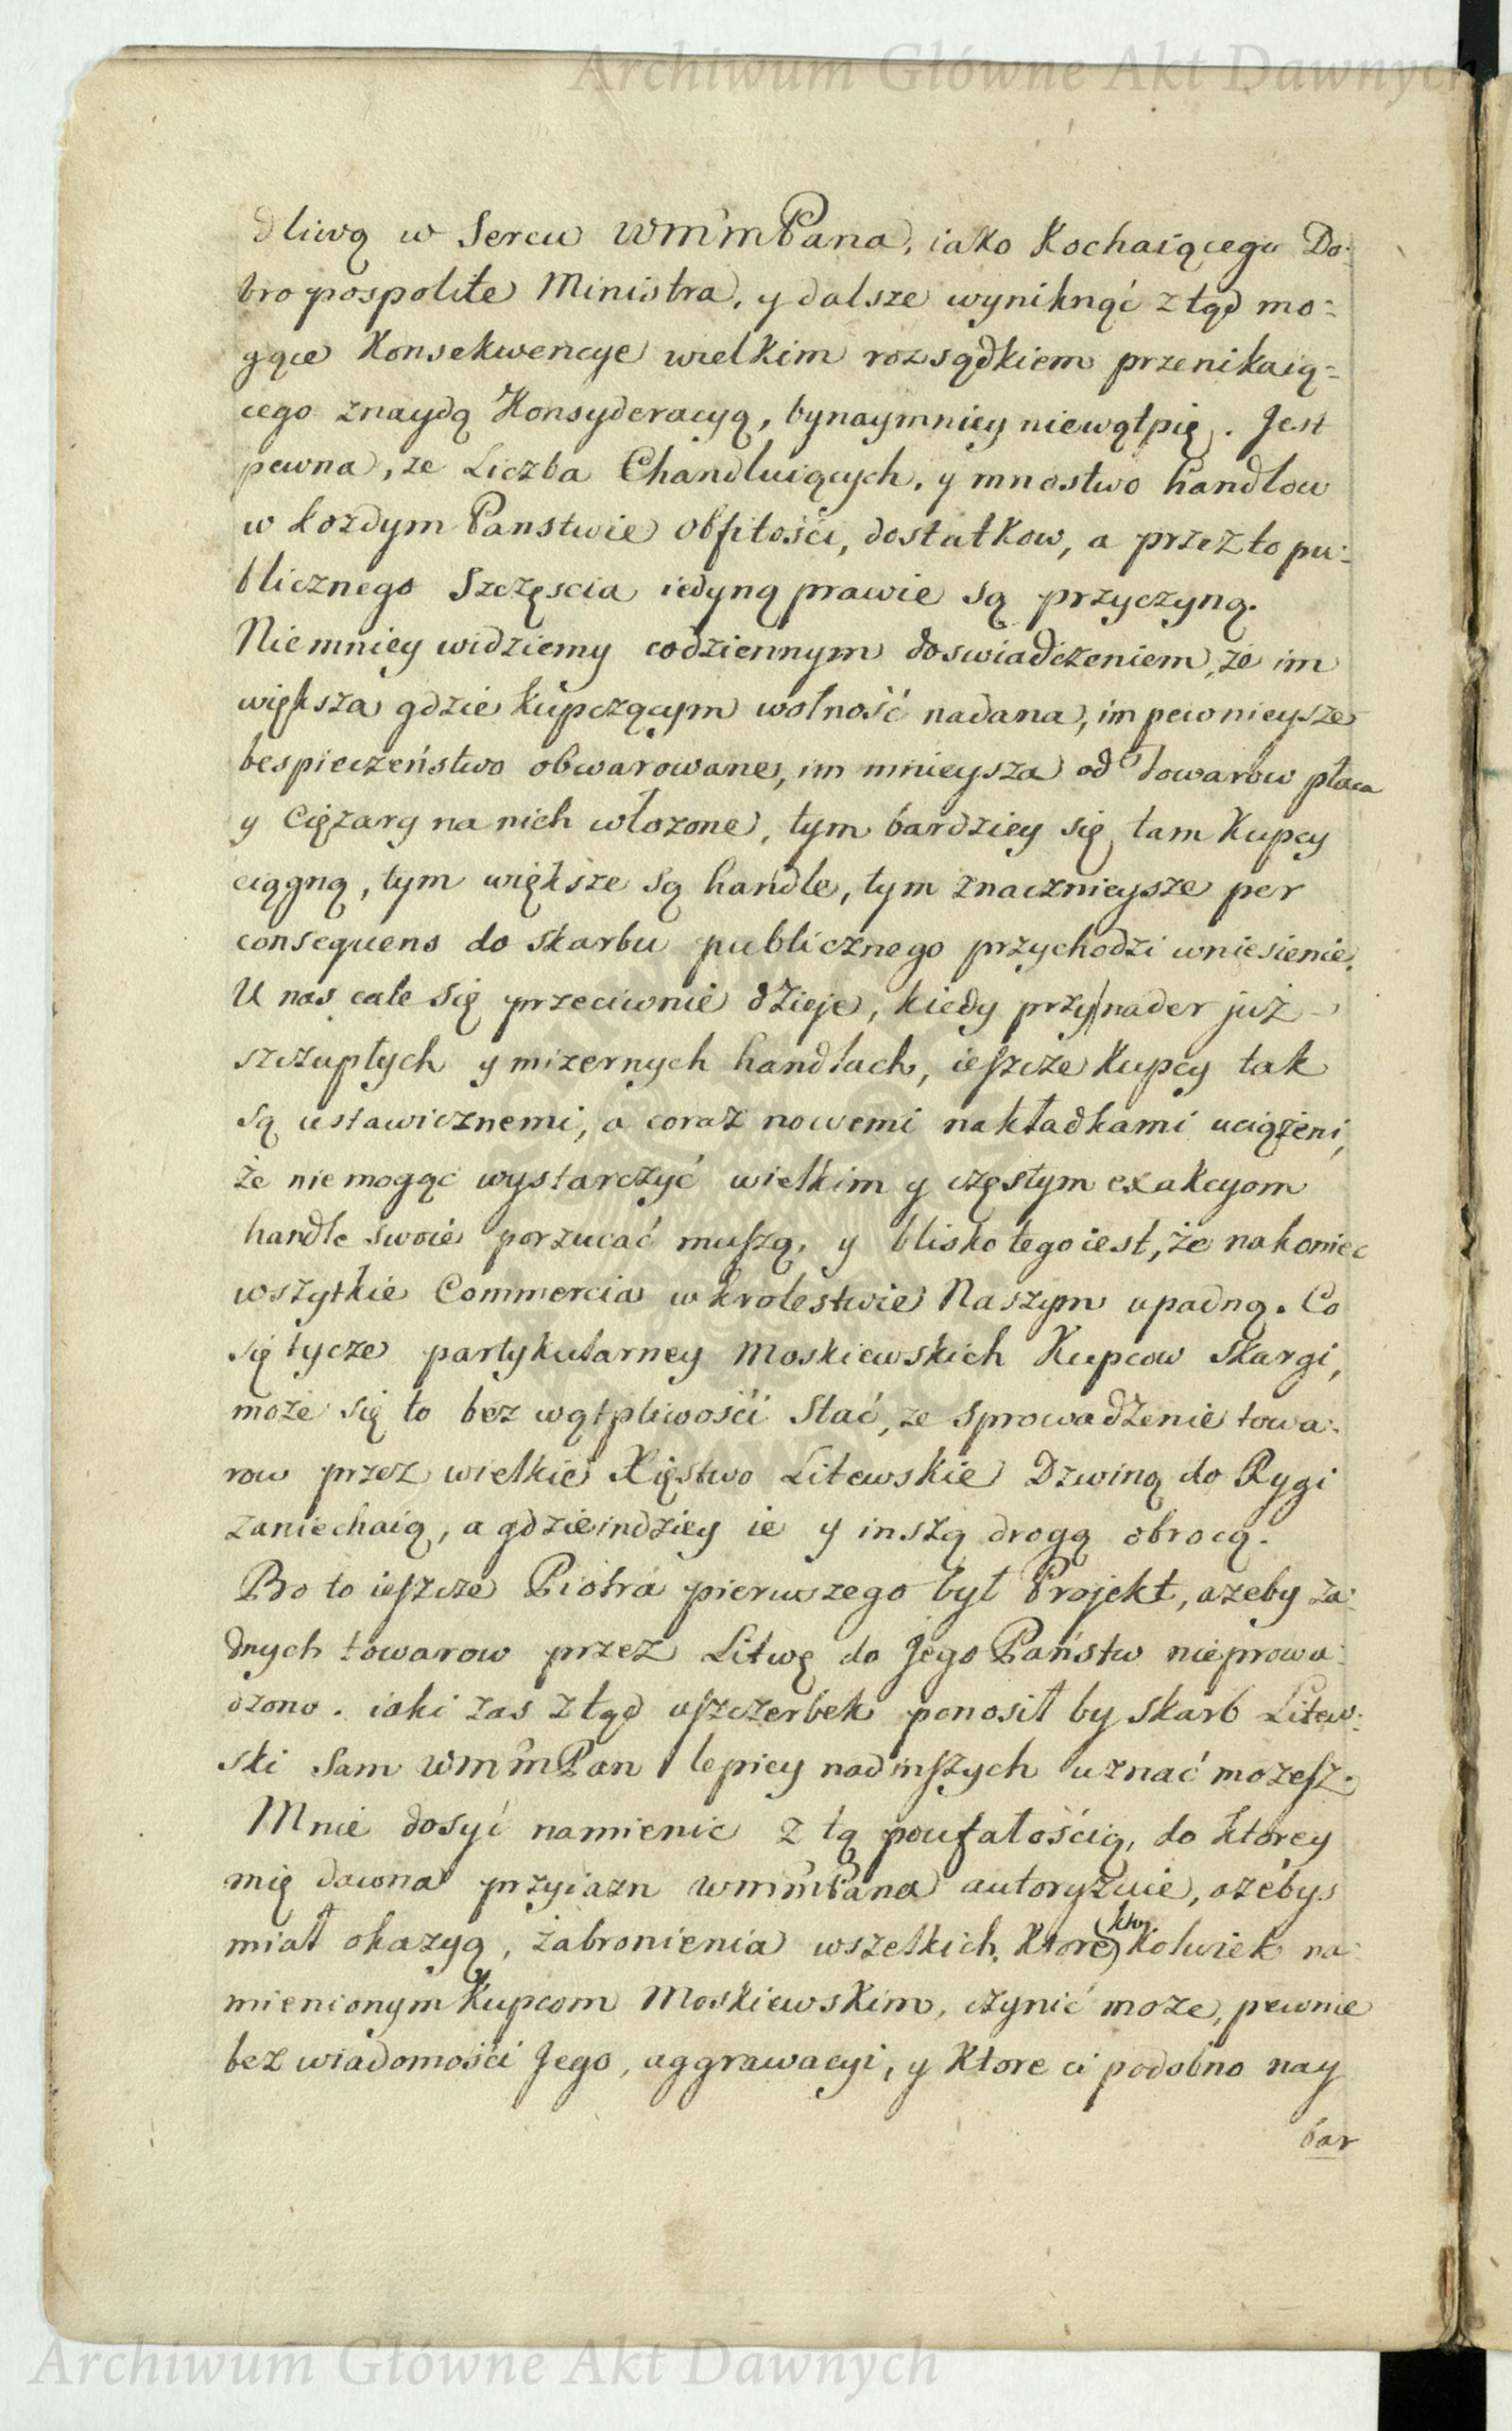 Archiwum Główne Akt Dawnych
dliwą w Sercu WMmPana, iako Kochaiącego Do-
bro pospolite Ministra, y dalsze wyniknąć ztąd mo-
gące Konsekwencye wielkim rozsądkiem przenikaią-
cego znaydą Konsyderacyą, bynaymniey niewątpię. Jest
pewna, ze Liczba Chandluiących, y mnostwo handlow
w kozdym Panstwie obfitości, dostatkow, a przezto pu-
blicznego Szczęscia iedyną prawie są przyczyną.
Niemniey widziemy codziennym doswiadczeniem, że im
większa gdzie kupczącym wolność nadana, im pewnieysze
bespieczeństwo obwarowane, im mnieysza od Towarow płaca
y Ciężary na nich włozone, tym bardziey się tam Kupcy
ciągną, tym większe są handle, tym znacznieysze per
consequens do skarbu publicznego przychodzi wniesienie.
U nas cale się przeciwnie dzieje, kiedy przy nader już
szczupłych y mizernych handlach, ieszcze Kupcy tak
są ustawicznemi, a coraz nowemi nakładkami uciążeni,
że niemogąc wystarczyć wielkim y częstym exakcyom
handle swoie porzucać muszą, y blisko tego iest, że nakoniec
wszytkie Commercia w krolestwie Naszym upadną. Co
się tycze partykularney Moskiewskich Kupcow Skargi,
może się to bez wątpliwości Stać, ze sprowadzenie towa-
row przez wielkie Xięstwo Litewskie Dzwiną do Rygi
zaniechaią, a gdzieindziey ie y inszą drogą obrocą.
Bo to ieszcze Piotra pierwszego był Projekt, azeby ża-
dnych towarow przez Litwę do Jego Państw nieprowa-
dzono. iaki zas ztąd uszczerbek ponosił by skarb Litew-
ski Sam WMmPan lepiey nadinszych uznać mozesz.
Mnie dosyć namienic z tą poufałością, do ktorey
mię dawna przyiazn WMmPana autoryzuie, ażebys
miał okazyą, żabronienia wszelkich, Ktore kto. kolwiek na-
mienionym Kupcom Moskiewskim, czynić moze, pewnie
bez wiadomości Jego, aggrawacyi, y Ktore ci podobno nay
bar
Archiwum Główne Akt Dawnych